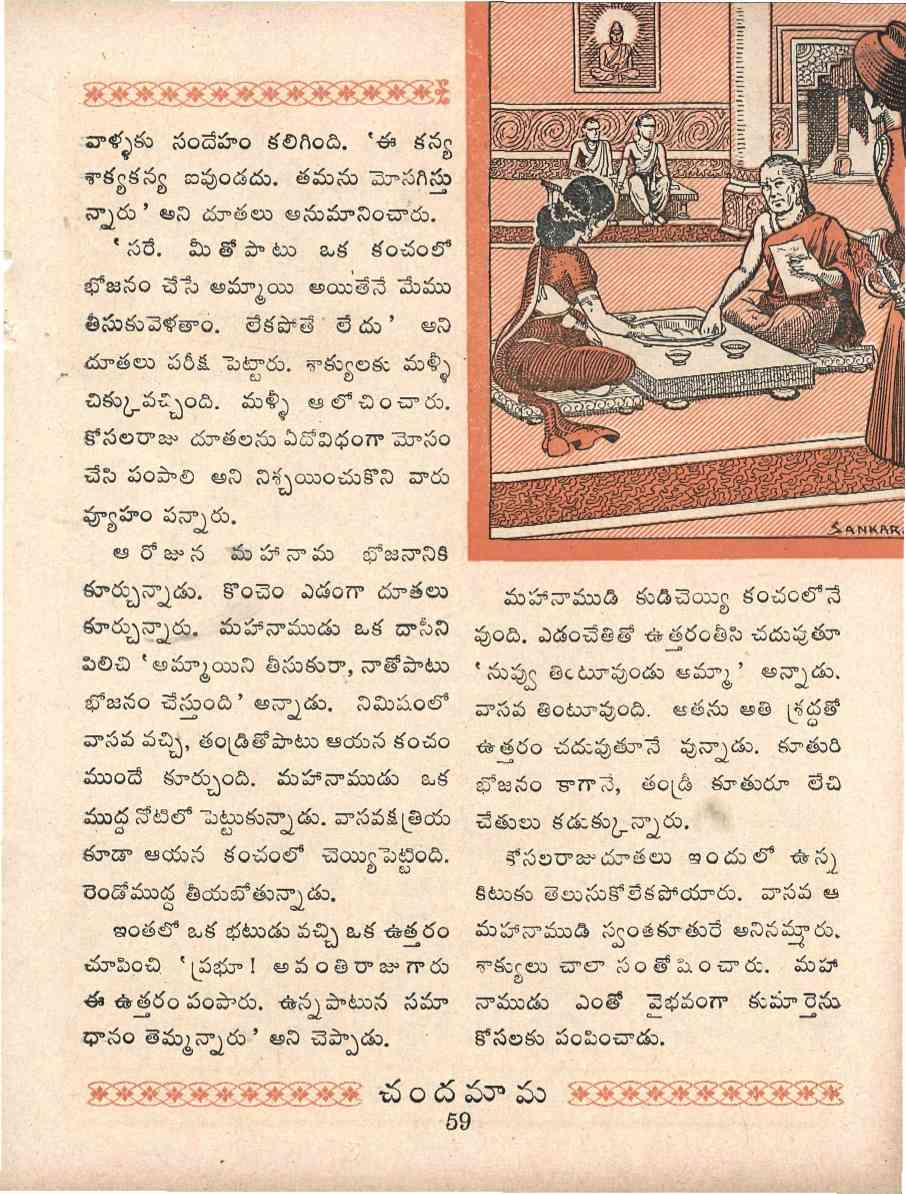 వాళ్ళకు సందేహం కలిగింది. 'ఈ కన్య
శాక్యకన్య ఐవుండదు. తమను మోసగిస్తు
న్నారు' అని దూతలు అనుమానించారు.
'సరే. మీతోపాటు ఒక కంచంలో
భోజనం చేసే అమ్మాయి అయితేనే మేము
తీసుకువెళతాం. లేకపోతే లేదు' అని
దూతలు పరీక్ష పెట్టారు. శాక్యులకు మళ్ళీ
చిక్కువచ్చింది. మళ్ళీ ఆలోచించారు.
కోసలరాజు దూతలను ఏదోవిధంగా మోసం
చేసి పంపాలి అని నిశ్చయించుకొని వారు
వ్యూహం పన్నారు.
ఆ రోజున మహానామ భోజనానికి
కూర్చున్నాడు. కొంచెం ఎడంగా దూతలు
కూర్చున్నారు. మహానాముడు ఒక దాసీని
పిలిచి 'అమ్మాయిని తీసుకురా, నాతోపాటు
భోజనం చేస్తుంది' అన్నాడు. నిమిషంలో
వాసవ వచ్చి, తండ్రితోపాటు ఆయన కంచం
ముందే కూర్చుంది. మహానాముడు ఒక
ముద్ద నోటిలో పెట్టుకున్నాడు. వాసవక్షత్రియ
కూడా ఆయన కంచంలో చెయ్యిపెట్టింది.
రెండోముద్ద తీయబోతున్నాడు.
ఇంతలో ఒక భటుడు వచ్చి ఒక ఉత్తరం
చూపించి 'ప్రభూ! అవంతిరాజుగారు
ఈ ఉత్తరం పంపారు. ఉన్నపాటున సమా
ధానం తెమ్మన్నారు' అని చెప్పాడు.
SANKAR.
మహానాముడి కుడిచెయ్యి కంచంలోనే
వుంది. ఎడంచేతితో ఉత్తరంతీసి చదువుతూ
'నువ్వు తింటూవుండు అమ్మా' అన్నాడు.
వాసవ తింటూవుంది. ఆతను అతి శ్రద్ధతో
ఉత్తరం చదువుతూనే వున్నాడు. కూతురి
భోజనం కాగానే, తండ్రీ కూతురూ లేచి
చేతులు కడుక్కున్నారు.
కోసలరాజుదూతలు ఇందులో ఉన్న
కిటుకు తెలుసుకోలేకపోయారు. వాసవ ఆ
మహానాముడి స్వంతకూతురే అనినమ్మారు.
శాక్యులు చాలా సంతోషించారు. మహా
నాముడు ఎంతో వైభవంగా కుమార్తెను
కోసలకు పంపించాడు.
చందమామ
59